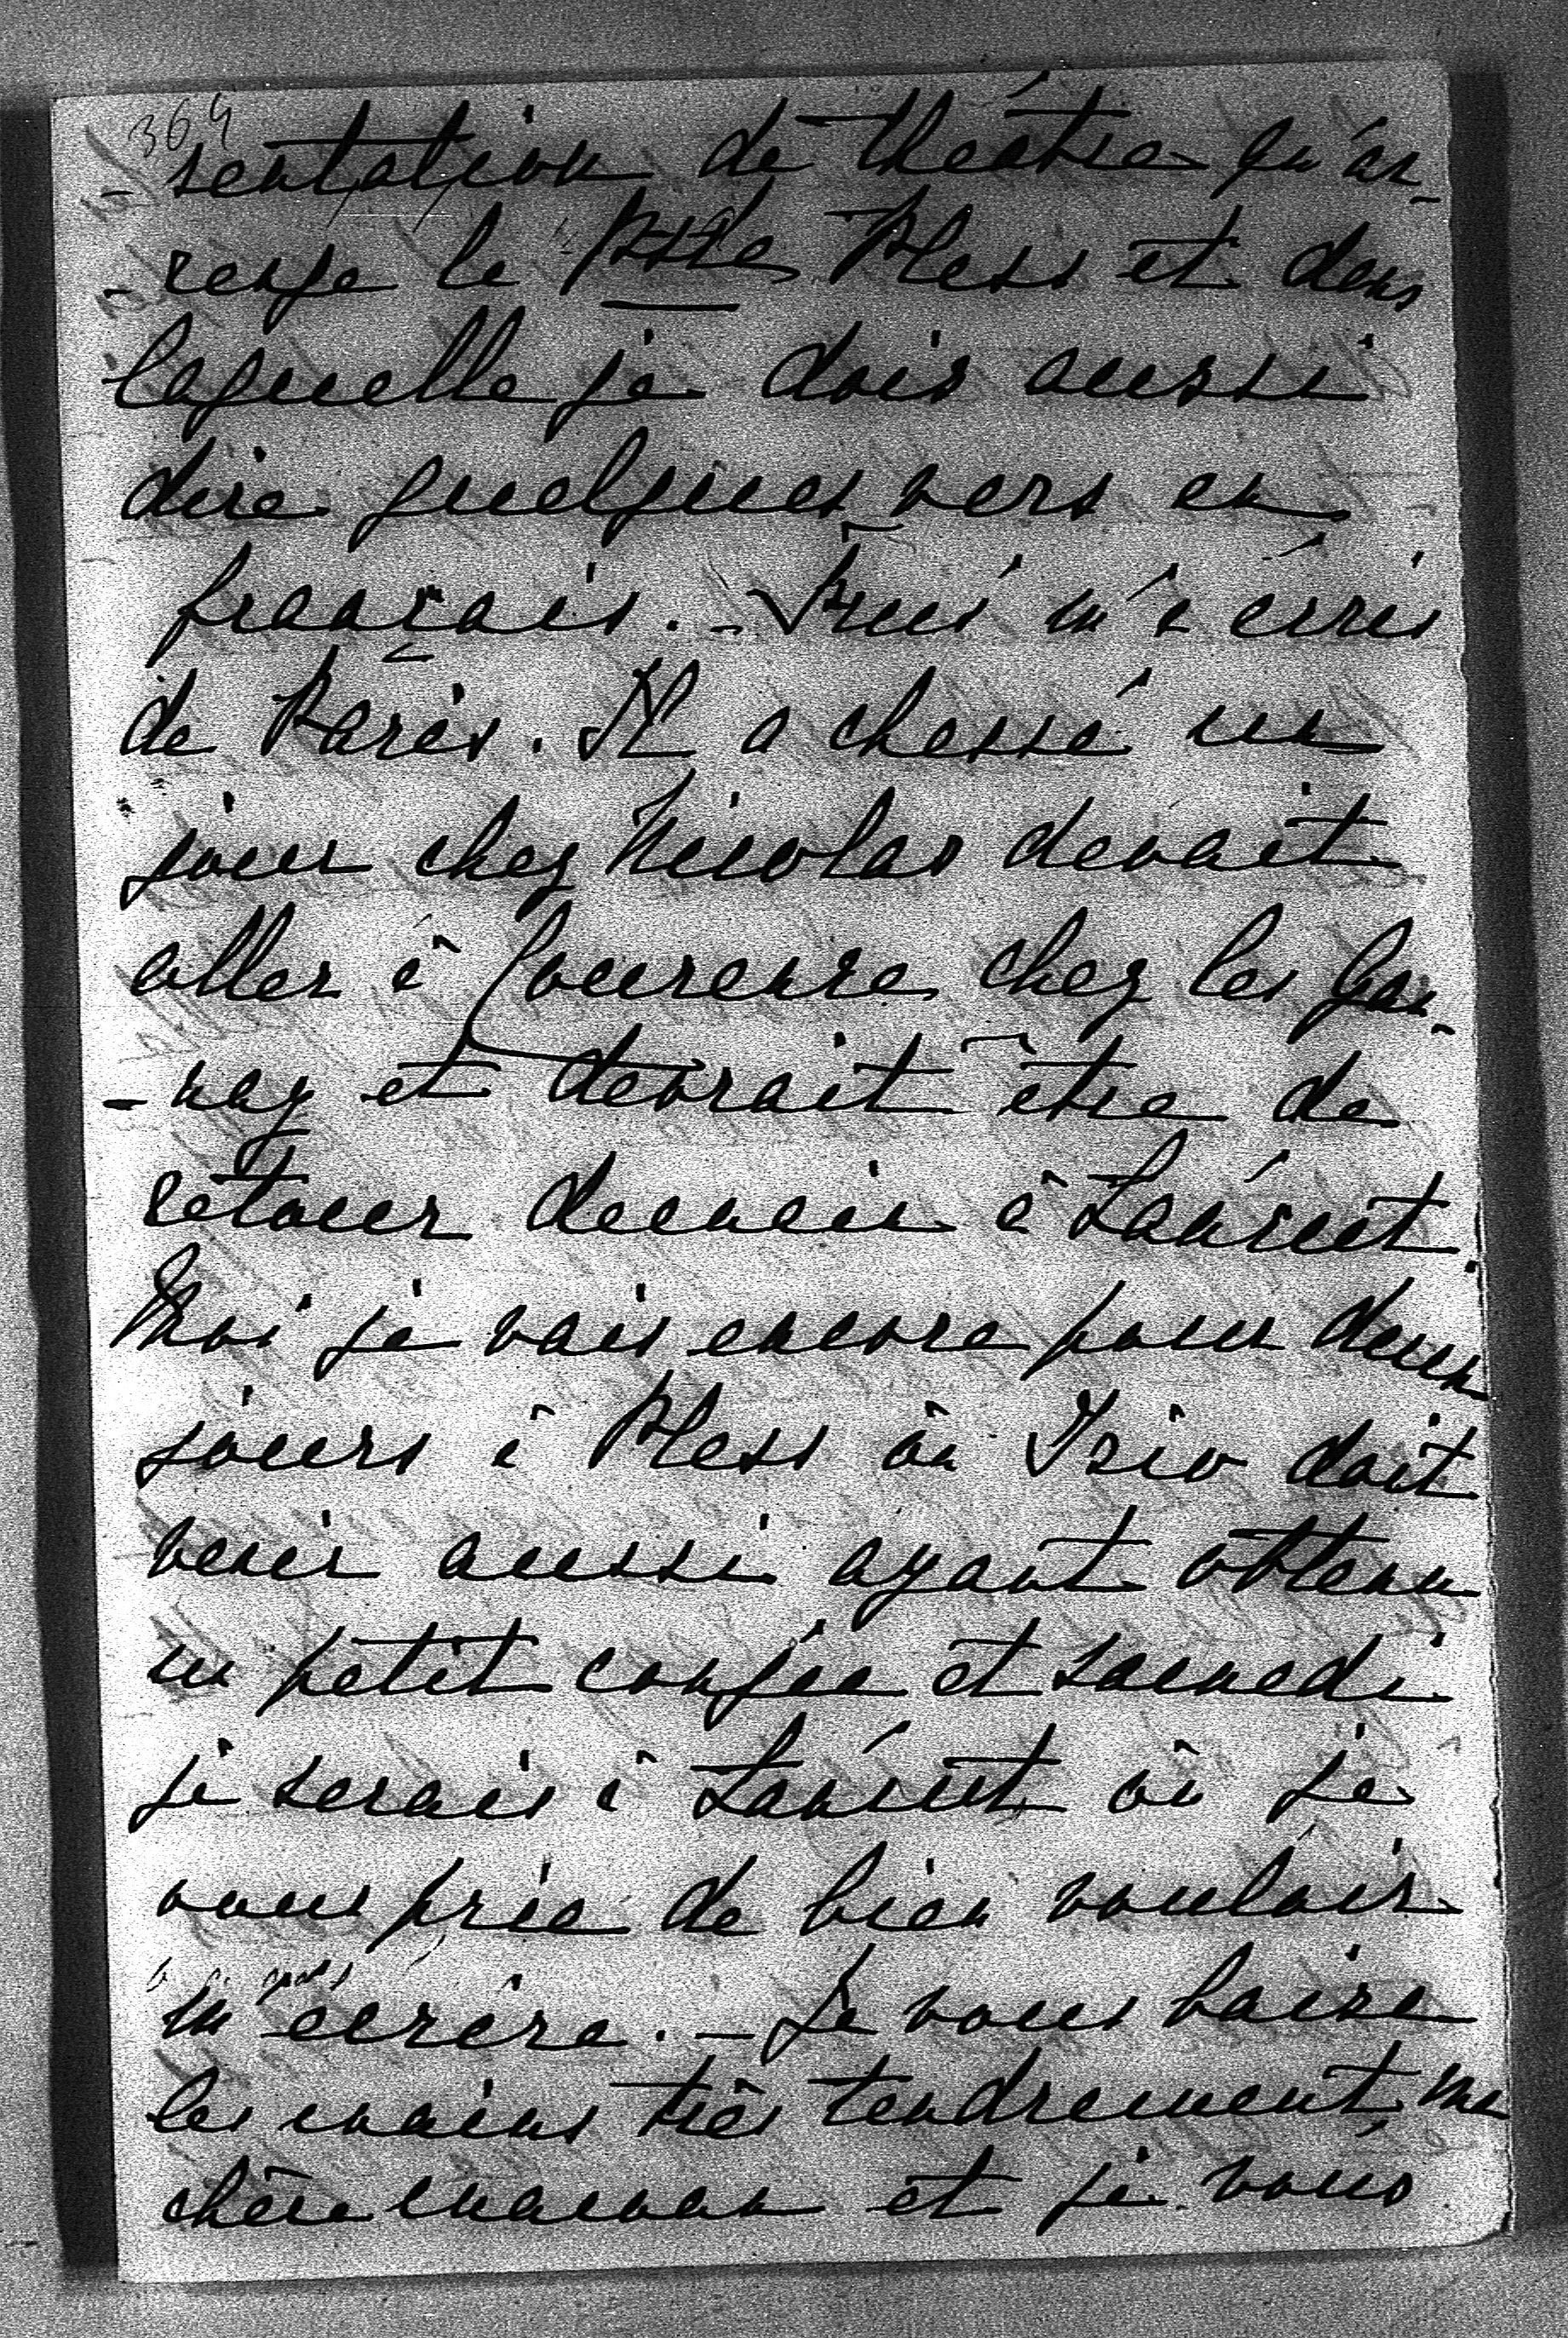 364
-sentation de théâtre qu'ar-
-range la Psse Pless et dans
laquelle je dois aussi
dire quelques vers en
français. - m'a écris
de Paris. Il a chassé un
jour chez Nicolas devait
aller à chez les
et devrait être de
retour demain à Łańcut.
Moi je vais encore pour deux
jours à Pless où doit
venir aussi ayant obtenu
un petit congée et samedi
je serais à Łańcut où je
vous prie de bien vouloir
m'écrire. - Je vous baise
les mains très tendrement ma
chère maman et je vous